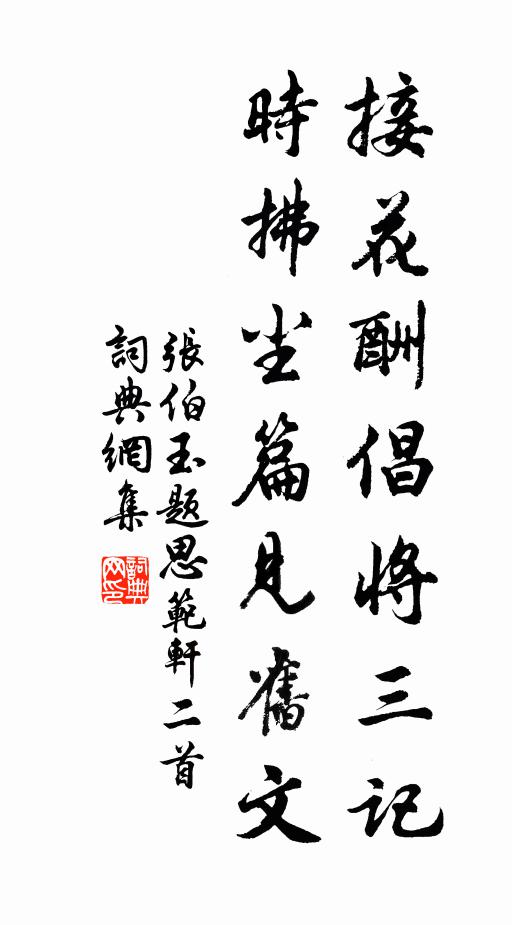 接花酬倡將三記
時拂尘篇見舊文
張伯玉題思範軒二首
詞典網集
詞典网印